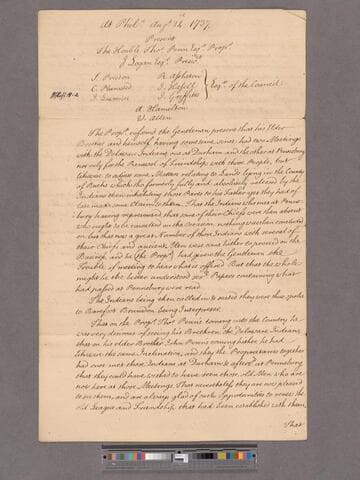 At Philᵃ. Augᵗ. 24, 1737.
Present
The Honble Thoˢ. Penn Esqʳ. Propʳ.
J Logan Esqʳ. Presidᵗ.
S. Preston R. Assheton
C. Plumsted S. Hasell Esqʳˢ. of the Council
T. Griffitts
A. Hamilton
W. Allen
The Propʳ. informd the Gentlemen present that his Elder
Brother and himself having some time since had two Meetings
with the Delaware Indians, one at Durham and the other at Pensbury
not only for the Renewal of Friendship with those People, but
likewise to adjust some Matters relating to Lands lying in the County
of Bucks which tho formerly fully and absolutely released by the
Indians then inhabiting those Parts to his Father yet they had of
late made some Claim to them. That the Indians who met at Pens-
bury having represented that some of their Chiefs were then absent
who ought to be consulted on the occasion, nothing was then concluded
on, but that now a great Number of these Indians with several of
their Chiefs and ancient Men were come hither to proceed on the
Business, and he (the Propʳ.) had given the Gentlemen the
Trouble of meeting to hear what is offered. But that the whole
might be the better understood Papers containing what
had passed at Pennsbury were read
The Indians being then called in & seated they were thus spoke
to Barefoot Brunsden being Interpreter
That on the Propʳ. Thoˢ. Penn's coming into the Country he
was very desirous of seeing his Brethren the Delaware Indians
that on his elder Brother John Penn's coming hither he had
likewise the same Inclination, and they the Proprietaries together
had once met those Indians at Durham & afterwᵈˢ at Pennsbury
that they could have wished to have seen those old Men who are
not here at those Meetings. That nevertheless they are now pleased
to see them, and are always glad of such Opportunities to renew the
old League and Friendship that had been established with them.
That